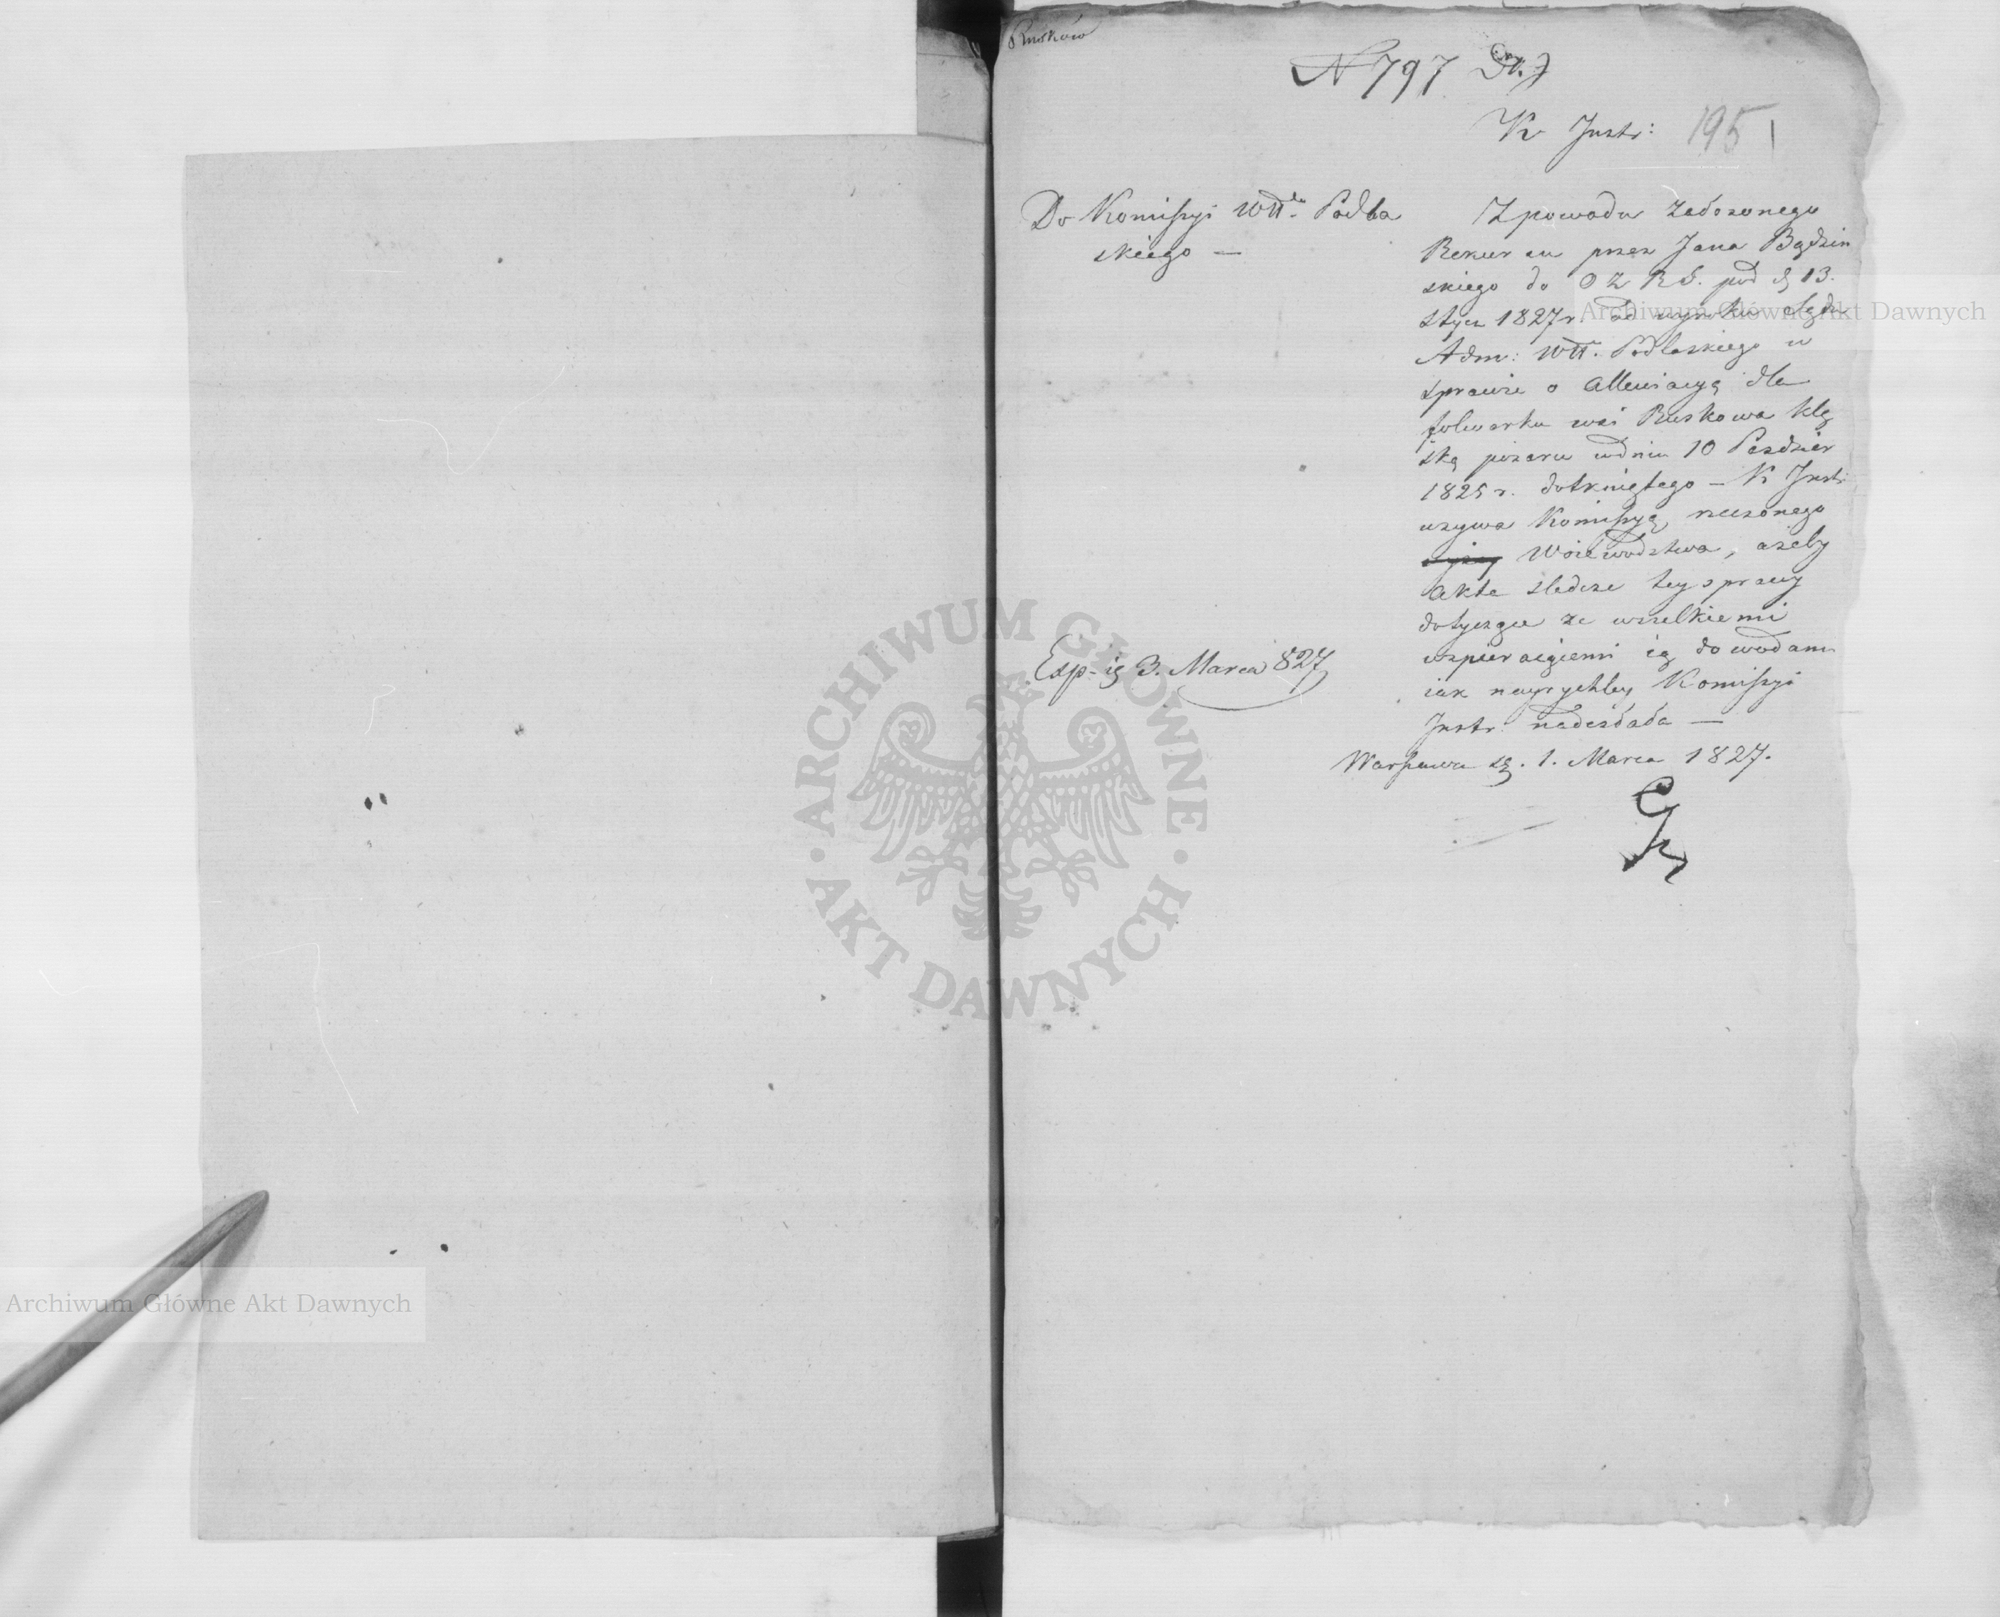 Rusków
N 797
K. Instr: 195
Do Komissyi Wtt. Podla
skiego —
Z powodu założonego
Rekursu przez Jana Bądzin
skiego do O Z R S. pod d 13.
stycz 1827 r. od wyroku Sądu
Adm: Wtt. Podlaskiego w
sprawie o allewiacyą dla
folwarku wsi Ruskowa klę
ską pożaru w dniu 10 Paździer
1825 r. dotkniętego — K Instr:
wzywa Komissyą rzeczonego
Woiewodztwa, ażeby
akta śledcze tey sprawy
dotyczące ze wszelkiemi
wspieraiącemi ią dowodami
iak nayrychley Komissyi
Instr. nadesłała —
Warszawa d. 1. Marca 1827.
Exp. 3. Marca 827
ARCHIWUM GŁÓWNE
AKT DAWNYCH
Archiwum Główne Akt Dawnych
Archiwum Główne Akt Dawnych